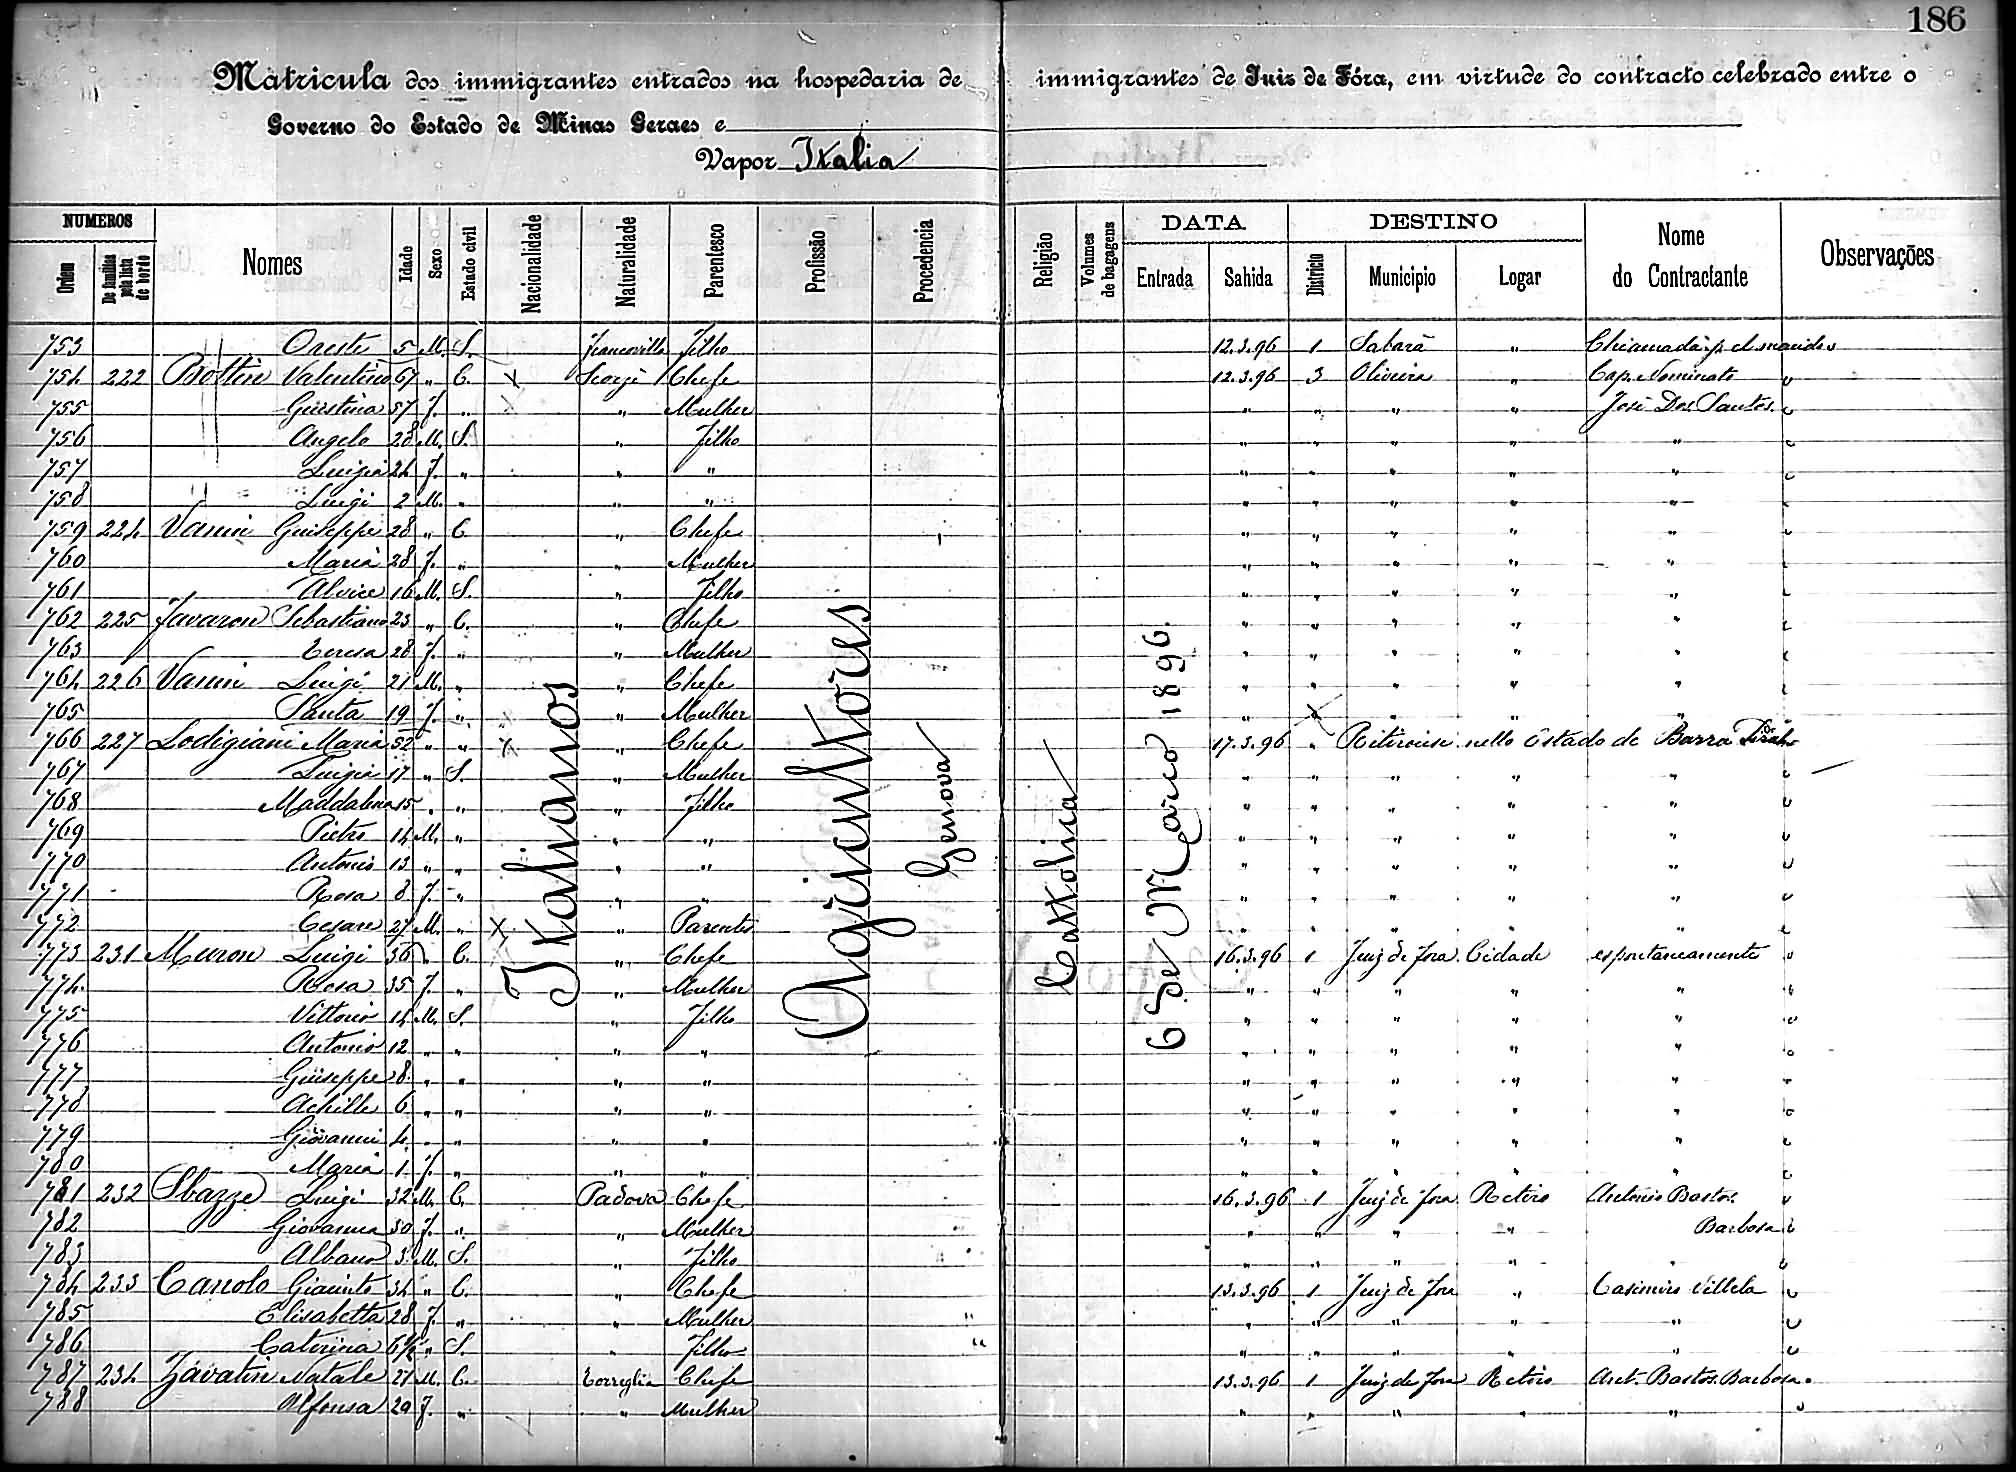 186
Matricula dos immigrantes entrados na hospedaria de immigrantes de Juiz de Fóra, em virtude do contracto celebrado entre o
Governo do Estado de Minas Geraes e
Vapor Italia
NUMEROS DATA DESTINO
Ordem De familias pela lista de bordo Nomes Idade Sexo Estado civil Nacionalidade Naturalidade Parentesco Profissão Procedencia Religião Volumes de bagagens Entrada Sahida Districto Municipio Logar Nome do Contractante Observações
Italianos Agricultores Genova Cattolica 6 de Março 1896.
753 Oreste 5 M. S. Francavilla Filho 12.3.96 1 Sabará " Chiamada p. el marido
754 222 Bottin Valentino 67 " C. Chefe 12.3.96 3 Oliveira " Cap. Nominato
755 Giustina 57 F. " " Mulher " " " " José Dos Santos
756 Angelo 28 M. S. " Filho " " " " "
757 Luigia 24 F. " " " " " " " "
758 Luigi 2 M. " " " " " " " "
759 224 Vanin Guiseppe 28 " C. " Chefe " " " " "
760 Maria 28 F. " " Mulher " " " " "
761 Alvice 16 M. S. " Filho " " " " "
762 225 Favaron Sebastiano 23 " C. " Chefe " " " " "
763 Teresa 28 F. " " Mulher " " " " "
764 226 Vanin Luigi 21 M. " " Chefe " " " " "
765 Santa 19 F. " " Mulher " " " " "
766 227 Lodigiani Maria 52 " " " Chefe 17.3.96 " Ritirousi nello Estado de Barra
767 Luigia 17 " S. " Mulher " " " " "
768 Maddalena 15 " " " Filho " " " " "
769 Pietro 14 M. " " " " " " " "
770 Antonio 13 " " " " " " " " "
771 Rosa 8 F. " " " " " " " "
772 Cesare 27 M. " " Parente " " " " "
773 231 Muron Luigi 36 " C. " Chefe 16.3.96 1 Juiz de Fora Cidade espontaneamente
774 Rosa 35 F. " " Mulher " " " " "
775 Vittorio 14 M. S. " Filho " " " " "
776 Antonio 12 " " " " " " " " "
777 Giuseppe 8 " " " " " " " " "
778 Achille 6 " " " " " " " " "
779 Giovanni 4 " " " " " " " " "
780 Maria 1 F. " " " " " " " "
781 232 Sbazze Luigi 32 M. C. Padova Chefe 16.3.96 1 Juiz de Fora Retiro Antonio Bastos
782 Giovanna 30 F. " " Mulher " " " " Barbosa
783 Albano 3 M. S. " Filho " " " "
784 233 Canolo Giacinto 34 " C. " Chefe 13.3.96 1 Juiz de Fora " Casimiro Villela
785 Elisabetta 28 F. " " Mulher " " " " "
786 Caterina 6½ " S. " Filho " " " " "
787 234 Zavatin Natale 27 M. C. Torreglia Chefe 13.3.96 1 Juiz de Fora Retiro Ant. Bastos Barbosa
788 Alfonsa 20 F. " " Mulher " " " " "